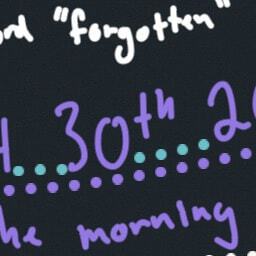 "forgotten"
30th
the morning